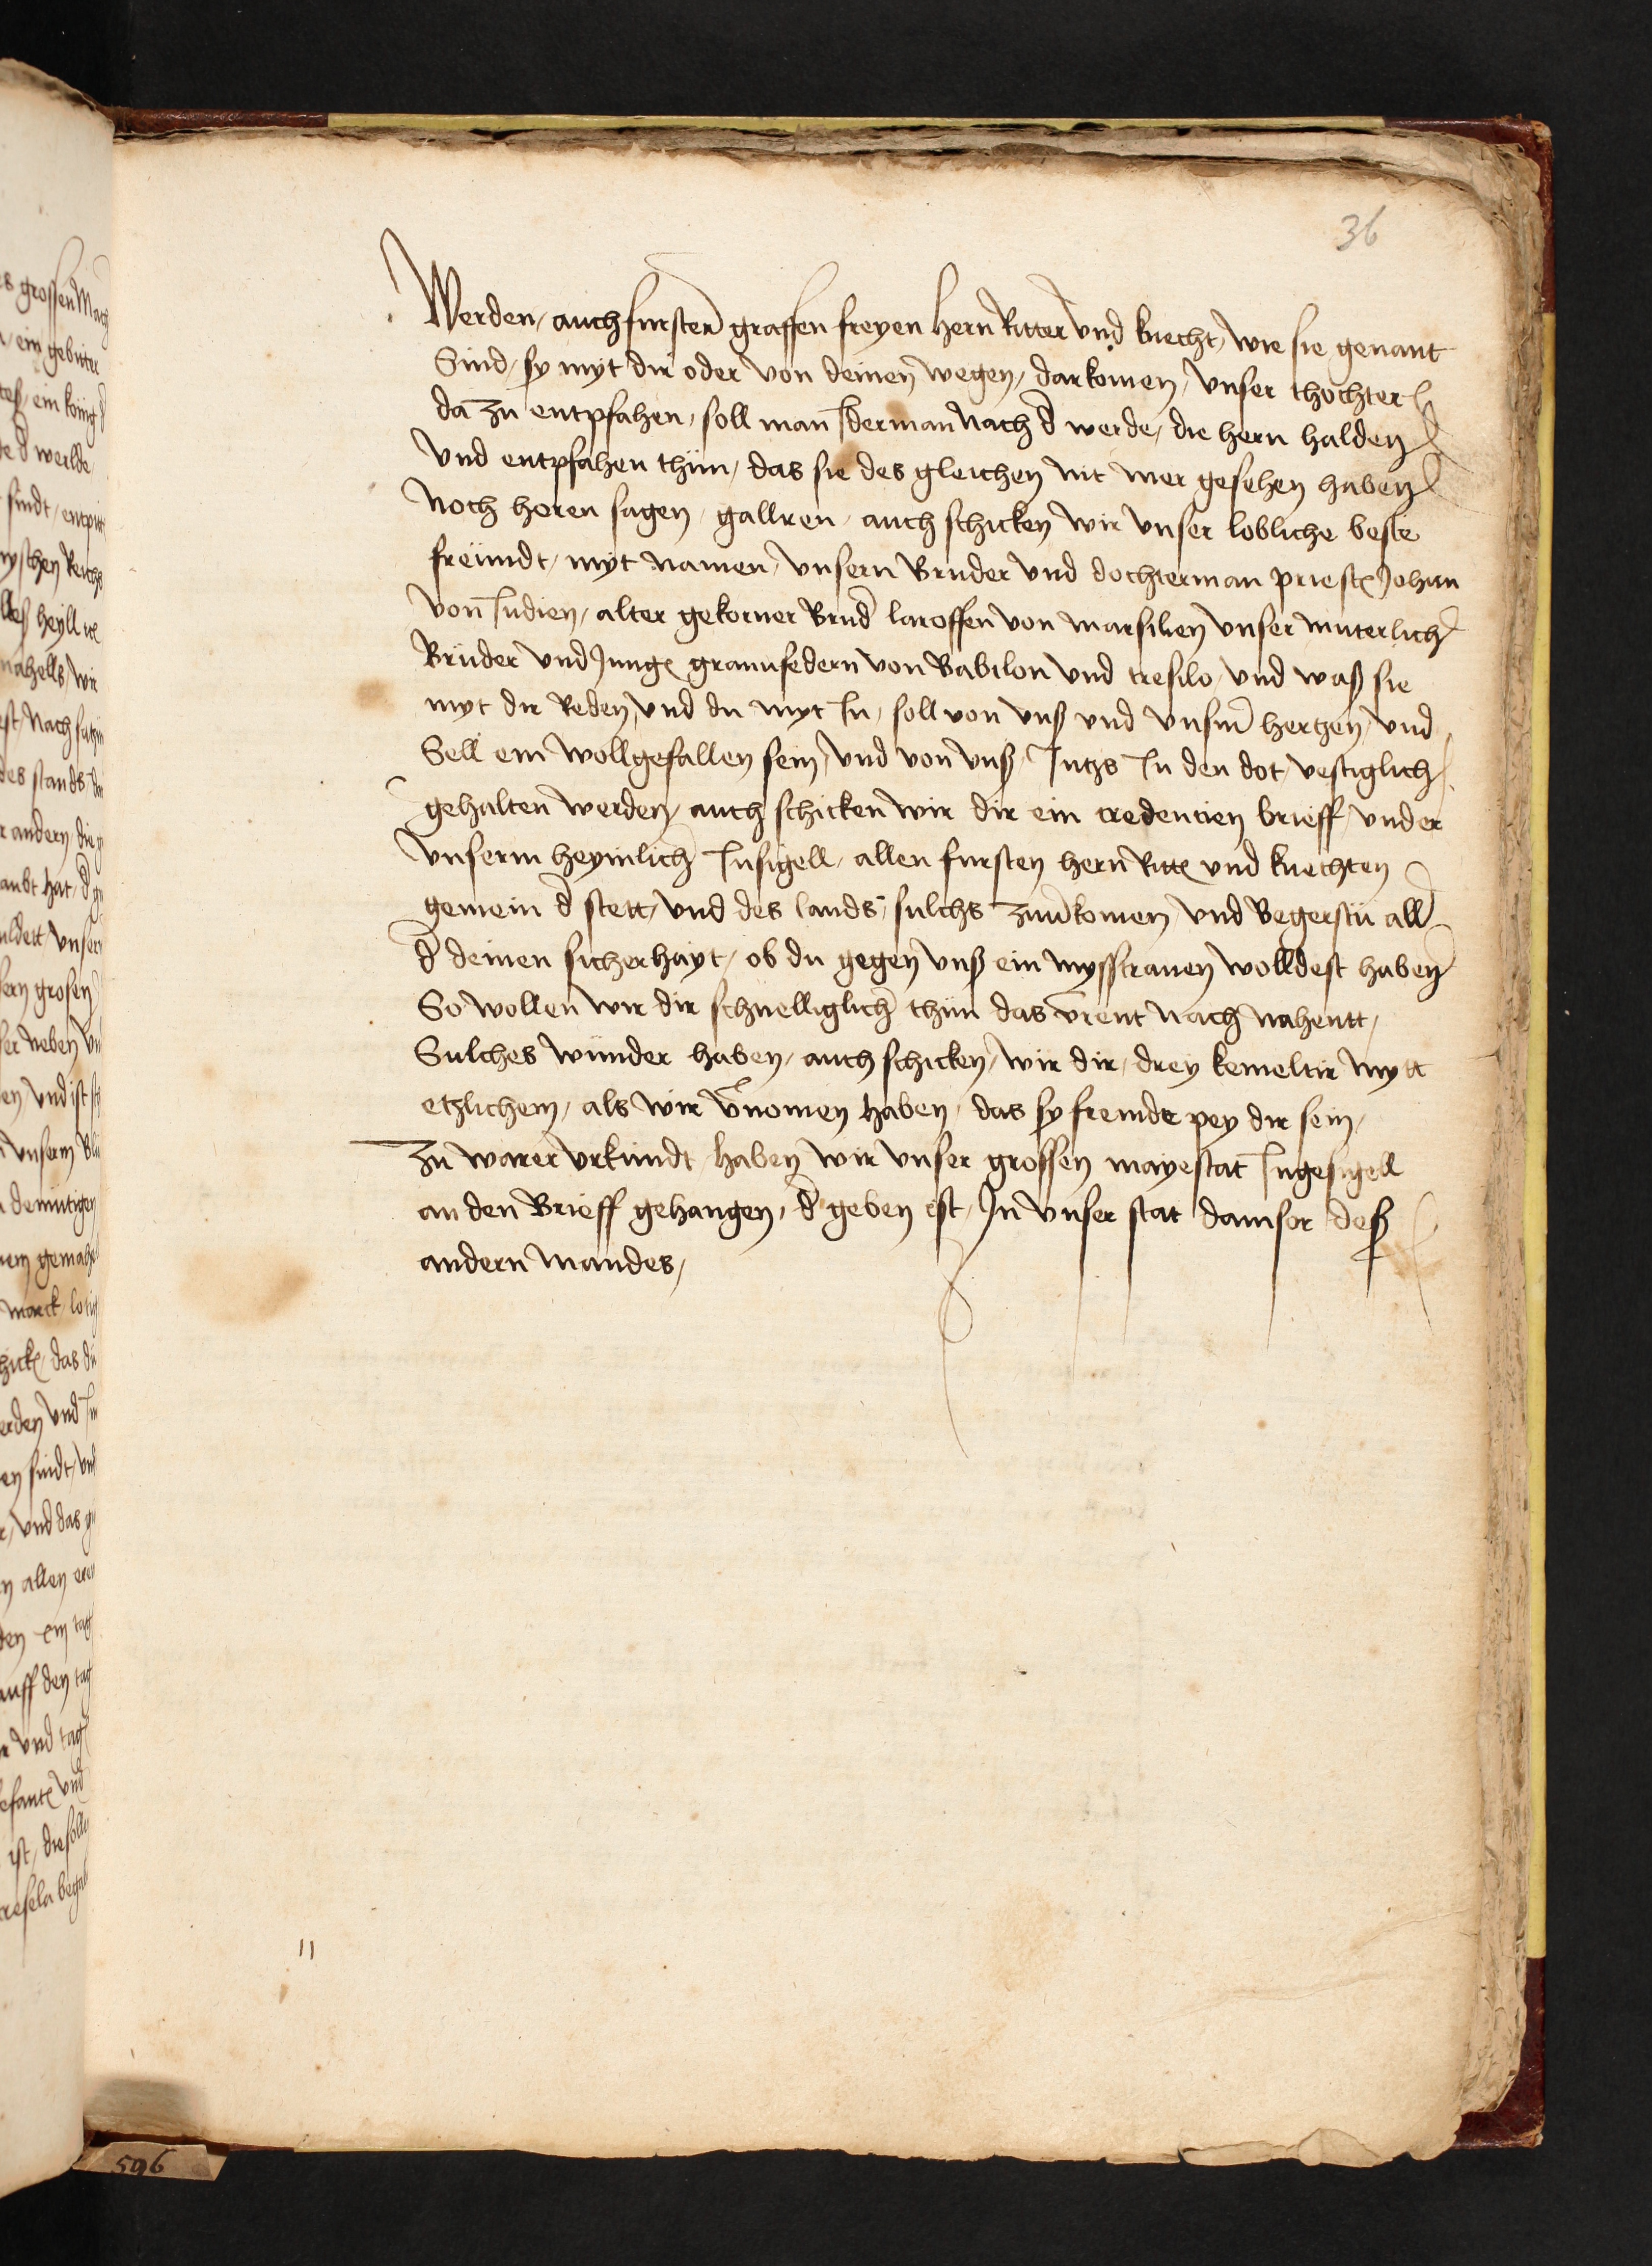 36
Werden / auch fursten graffen freyen hern Ritter vnd knecht / wie sie genant
Sind / sy myt dir oder von deinen wegen / dar komen / vnser thochter
da zu entpfahen / soll man Iderman nach d werde / die hern halden
vnd entpfahen thün / das sie des gleichen nit mer gesehen haben
Noch horen sagen / auch schicken wir vnser lobliche beste
freündt / myt namen / vnsern Bruder vnd dochterman priest Johan
von Indien / alter gekorner Brud laroffen von marsilien vnser muterlich
Brüder vnd Jung grannfedern von Babilon vnd tresilo / vnd waß sie
myt dir Reden / vnd du myt In / soll von vnß vnd vnsm hertzen / vnd
Sell ein wollgefallen sein / vnd von vnß / Intzs In den dot / vestiglich
gehalten werden / auch schicken wir dir ein credencien brieff / vnder
vnserm heymlich Insigell / allen fursten hern Ritt vnd knechten
gemein d stett / vnd des lands / sulchs komen vnd Begerstu all
d deinen sicherhayt / ob du gegen vnß ein mysstrauen wolldest haben
So wollen wir dir schnelliglich thün das nach nahentt /
Sulches wünder haben / auch schicken / wir dir / drey kemeltir mytt
etzlichem / als wir vnomen haben / das sy fremde pey dir sein /
Zu warer vrkundt / haben wir vnser grossen mayestat Ingesigell
an den Brieff gehangen / d geben ist / In vnser stat damsor deß
andern mandes /
11
596